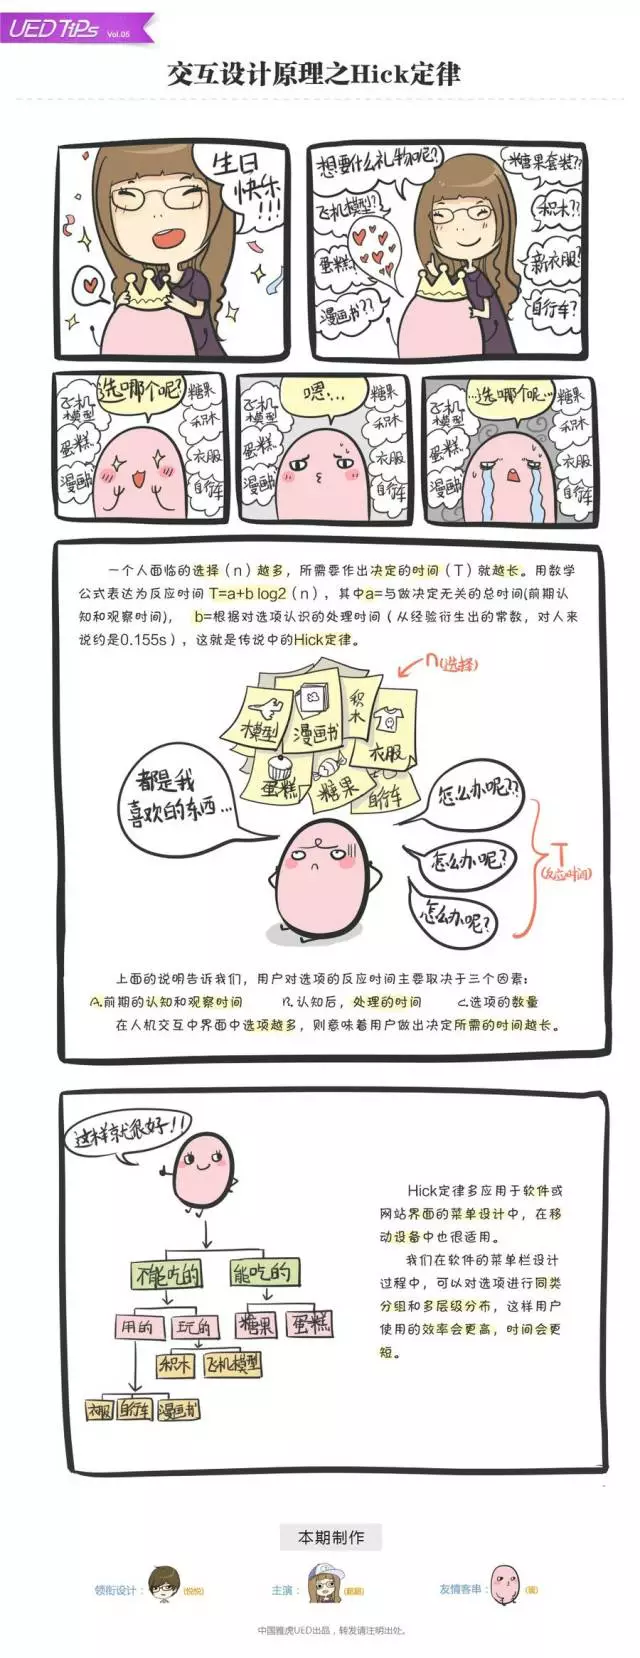 UED TiPs Vol.05
交互设计原理之Hick定律
生日
快乐
!!!
想要什么礼物呢?
飞机模型?
蛋糕?
漫画书??
糖果套装??
积木??
新衣服?
自行车?
选哪个呢?
飞机
模型
蛋糕
漫画书
糖果
积木
衣服
自行车
嗯...
飞机
模型
蛋糕
漫画书
糖果
积木
衣服
自行车
...选哪个呢...
飞机
模型
蛋糕
漫画书
糖果
积木
衣服
自行车
一个人面临的选择（n）越多，所需要作出决定的时间（T）就越长。用数学
公式表达为反应时间 T=a+b log2（n），其中a=与做决定无关的总时间(前期认
知和观察时间)， b=根据对选项认识的处理时间（从经验衍生出的常数，对人来
说约是0.155s），这就是传说中的Hick定律。
n(选择)
模型
漫画书
积木
衣服
蛋糕
糖果
自行车
都是我
喜欢的东西...
怎么办呢??
怎么办呢?
怎么办呢?
T
(反应时间)
上面的说明告诉我们，用户对选项的反应时间主要取决于三个因素：
A.前期的认知和观察时间 B.认知后，处理的时间 C.选项的数量
在人机交互中界面中选项越多，则意味着用户做出决定所需的时间越长。
这样就很好!!
不能吃的 能吃的
用的 玩的 糖果 蛋糕
积木 飞机模型
衣服 自行车 漫画书
Hick定律多应用于软件或
网站界面的菜单设计中，在移
动设备中也很适用。
我们在软件的菜单栏设计
过程中，可以对选项进行同类
分组和多层级分布，这样用户
使用的效率会更高，时间会更
短。
本期制作
领衔设计： (悦悦) 主演： 友情客串：
中国雅虎UED出品，转发请注明出处。